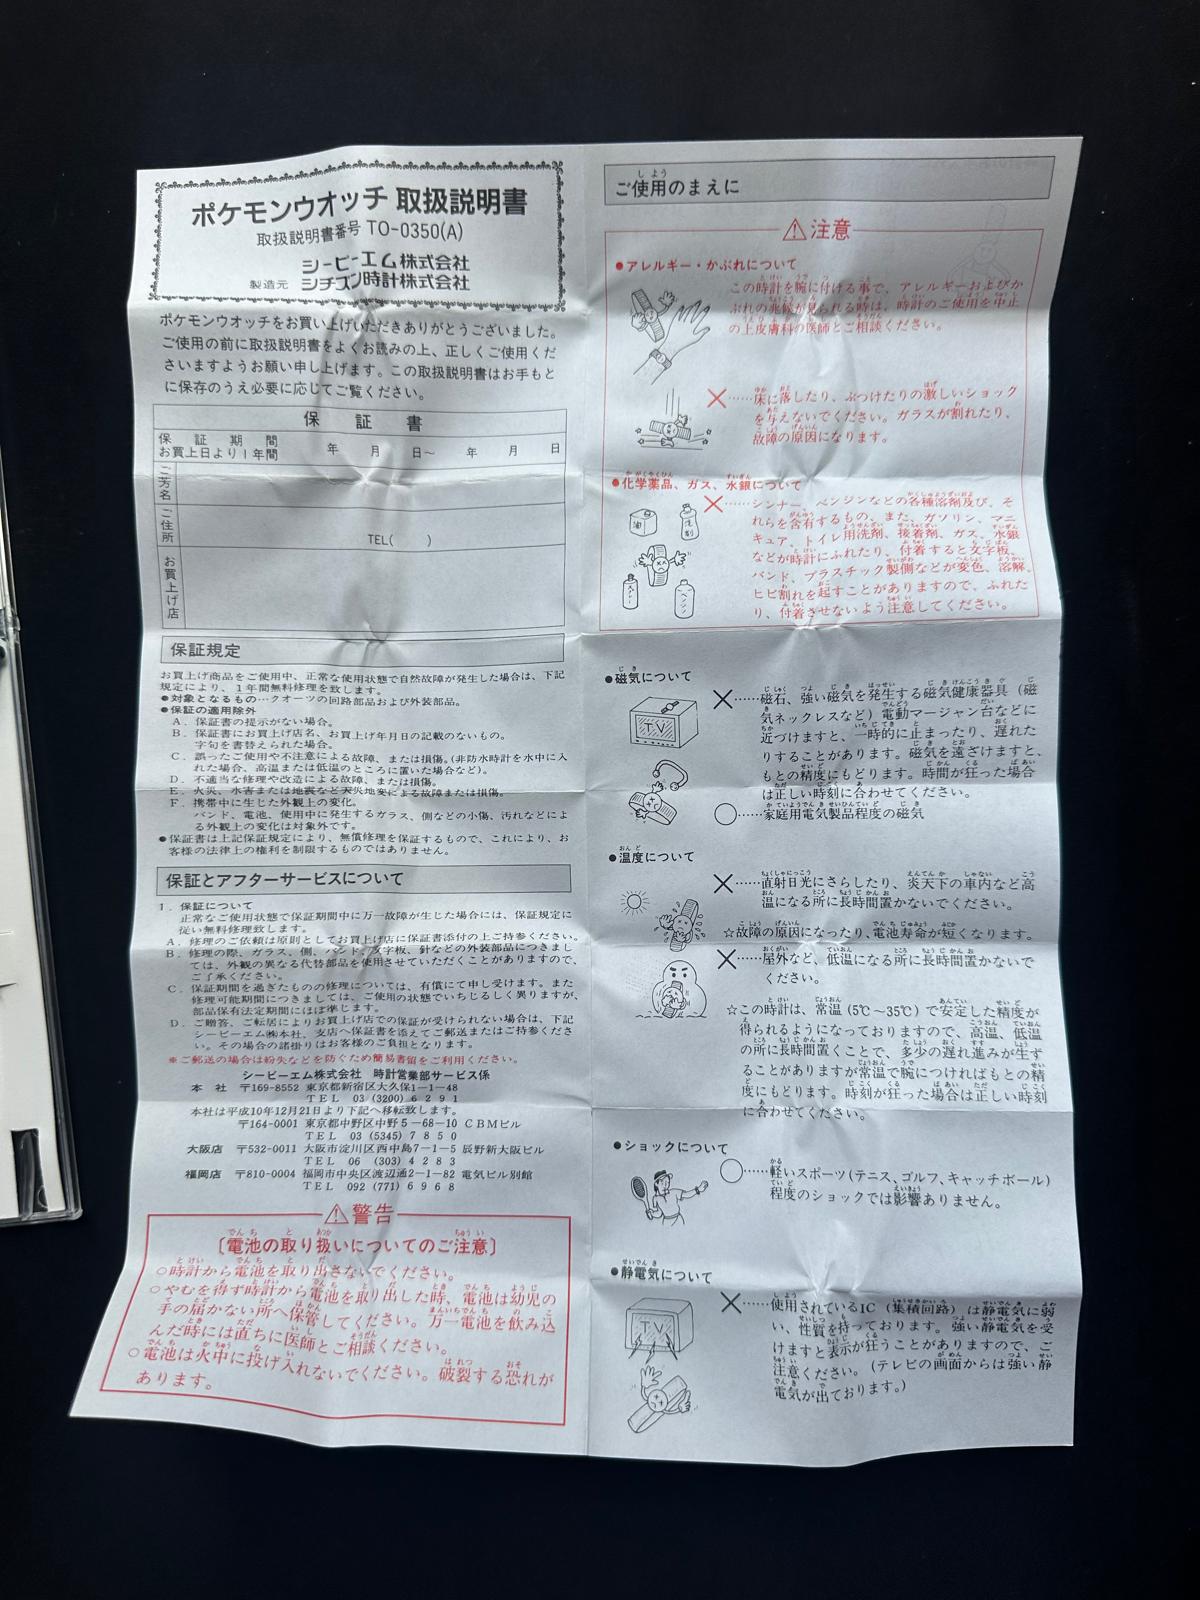 ポケモンウオッチ 取扱説明書
取扱説明書番号 TO-0350(A)
シービーエム株式会社
製造元 シチズン時計株式会社
ポケモンウオッチをお買い上げいただきありがとうございました。
ご使用の前に取扱説明書をよくお読みの上、正しくご使用くだ
さいますようお願い申し上げます。この取扱説明書はお手もと
に保存のうえ必要に応じてご覧ください。
保証書
保証期間
お買上日より1年間
年 月 日〜 年 月 日
ご芳名
ご住所
TEL( )
お買上げ店
保証規定
お買上げ商品をご使用中、正常な使用状態で自然故障が発生した場合は、下記
規定により、1年間無料修理を致します。
●対象となるもの…クオーツの回路部品および外装部品。
●保証の適用除外
A. 保証書の提示がない場合。
B. 保証書にお買上げ店名、お買上げ年月日の記載のないもの。
字句を書替えられた場合。
C. 誤ったご使用や不注意による故障、または損傷。(非防水時計を水中に入
れた場合、高温または低温のところに置いた場合など)。
D. 不適当な修理や改造による故障、または損傷。
E. 火災、水害または地震など天災地変による故障または損傷。
F. 携帯中に生じた外観上の変化。
バンド、電池、使用中に発生するガラス、側などの小傷、汚れなどによ
る外観上の変化は対象外です。
●保証書は上記保証規定により、無償修理を保証するもので、これにより、お
客様の法律上の権利を制限するものではありません。
保証とアフターサービスについて
1. 保証について
正常なご使用状態で保証期間中に万一故障が生じた場合には、保証規定に
従い無料修理致します。
A. 修理のご依頼は原則としてお買上げ店に保証書添付の上ご持参ください。
B. 修理の際、ガラス、側、バンド、文字板、針などの外装部品につきまし
ては、外観の異なる代替部品を使用させていただくことがありますので、
ご了承ください。
C. 保証期間を過ぎたものの修理については、有償にて申し受けます。また
修理可能期間につきましては、ご使用の状態でいちじるしく異りますが、
部品保有法定期間にほぼ準じます。
D. ご贈答、ご転居によりお買上げ店での保証が受けられない場合は、下記
シービーエム㈱本社、支店へ保証書を添えてご郵送またはご持参くださ
い。その場合の諸掛りはお客様のご負担となります。
※ご郵送の場合は紛失などを防ぐため簡易書留をご利用ください。
シービーエム株式会社 時計営業部サービス係
本社 〒169-8552 東京都新宿区大久保1-1-48
TEL 03 (3200) 6291
本社は平成10年12月21日より下記へ移転致します。
〒164-0001 東京都中野区中野5-68-10 CBMビル
TEL 03 (5345) 7850
大阪店 〒532-0011 大阪市淀川区西中島7-1-5 辰野新大阪ビル
TEL 06 (303) 4283
福岡店 〒810-0004 福岡市中央区渡辺通2-1-82 電気ビル別館
TEL 092 (771) 6968
⚠警告
〔電池の取り扱いについてのご注意〕
○時計から電池を取り出さないでください。
○やむを得ず時計から電池を取り出した時、電池は幼児の
手の届かない所へ保管してください。万一電池を飲み込
んだ時には直ちに医師とご相談ください。
○電池は火中に投げ入れないでください。破裂する恐れが
あります。
ご使用のまえに
⚠注意
●アレルギー・かぶれについて
この時計を腕に付ける事で、アレルギーおよびか
ぶれの兆候が見られる時は、時計のご使用を中止
の上皮膚科の医師とご相談ください。
×……床に落したり、ぶつけたりの激しいショック
を与えないでください。ガラスが割れたり、
故障の原因になります。
●化学薬品、ガス、水銀について
×……シンナー、ベンジンなどの各種溶剤及び、そ
れらを含有するもの、また、ガソリン、マニ
キュア、トイレ用洗剤、接着剤、ガス、水銀
などが時計にふれたり、付着すると文字板、
バンド、プラスチック製側などが変色、溶解、
ヒビ割れを起すことがありますので、ふれた
り、付着させないよう注意してください。
油
洗剤
●磁気について
×……磁石、強い磁気を発生する磁気健康器具(磁
気ネックレスなど)電動マージャン台などに
近づけますと、一時的に止まったり、遅れた
りすることがあります。磁気を遠ざけますと、
もとの精度にもどります。時間が狂った場合
は正しい時刻に合わせてください。
○……家庭用電気製品程度の磁気
TV
●温度について
×……直射日光にさらしたり、炎天下の車内など高
温になる所に長時間置かないでください。
☆故障の原因になったり、電池寿命が短くなります。
×……屋外など、低温になる所に長時間置かないで
ください。
☆この時計は、常温(5℃〜35℃)で安定した精度が
得られるようになっておりますので、高温、低温
の所に長時間置くことで、多少の遅れ進みが生ず
ることがありますが常温で腕につければもとの精
度にもどります。時刻が狂った場合は正しい時刻
に合わせてください。
●ショックについて
○……軽いスポーツ(テニス、ゴルフ、キャッチボール)
程度のショックでは影響ありません。
●静電気について
×……使用されているIC(集積回路)は静電気に弱
い、性質を持っております。強い静電気を受
けますと表示が狂うことがありますので、ご
注意ください。(テレビの画面からは強い静
電気が出ております。)
TV